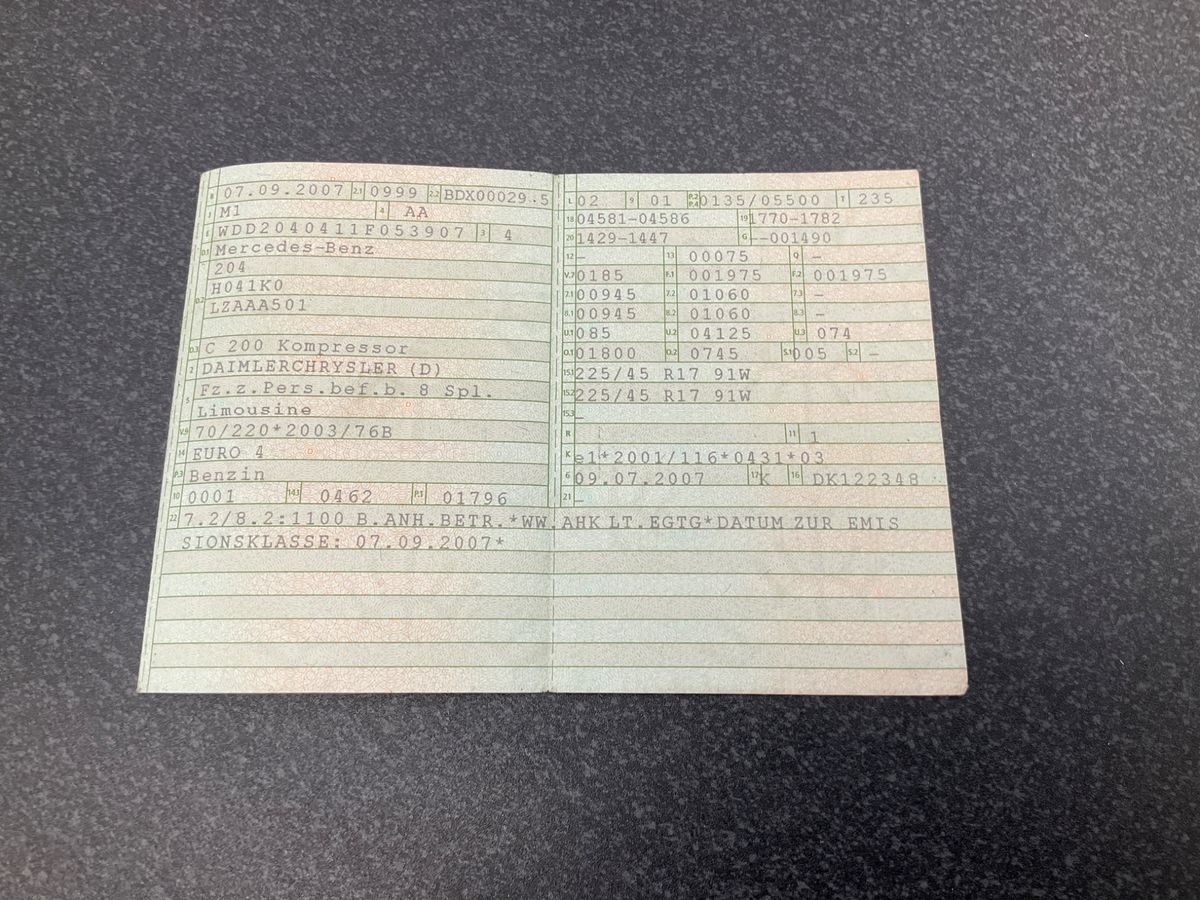 B 07.09.2007 2.1 0999 2.2 BDX00029.5
J M1 4 AA
E WDD2040411F053907 3 4
D.1 Mercedes-Benz
204
D.2 H041K0
LZAAA501
D.3 C 200 Kompressor
2 DAIMLERCHRYSLER (D)
5 Fz.z.Pers.bef.b. 8 Spl.
Limousine
V.9 70/220*2003/76B
14 EURO 4
P.3 Benzin
10 0001 14.1 0462 P.1 01796
L 02 9 01 P.2 P.4 0135/05500 T 235
18 04581-04586 19 1770-1782
20 1429-1447 G --001490
12 - 13 00075 Q -
V.7 0185 F.1 001975 F.2 001975
7.1 00945 7.2 01060 7.3 -
8.1 00945 8.2 01060 8.3 -
U.1 085 U.2 04125 U.3 074
O.1 01800 O.2 0745 S.1 005 S.2 -
15.1 225/45 R17 91W
15.2 225/45 R17 91W
15.3 -
R 11 1
K e1*2001/116*0431*03
6 09.07.2007 17 K 16 DK122348
21 -
22 7.2/8.2:1100 B.ANH.BETR.*WW.AHK LT.EGTG*DATUM ZUR EMIS
SIONSKLASSE: 07.09.2007*